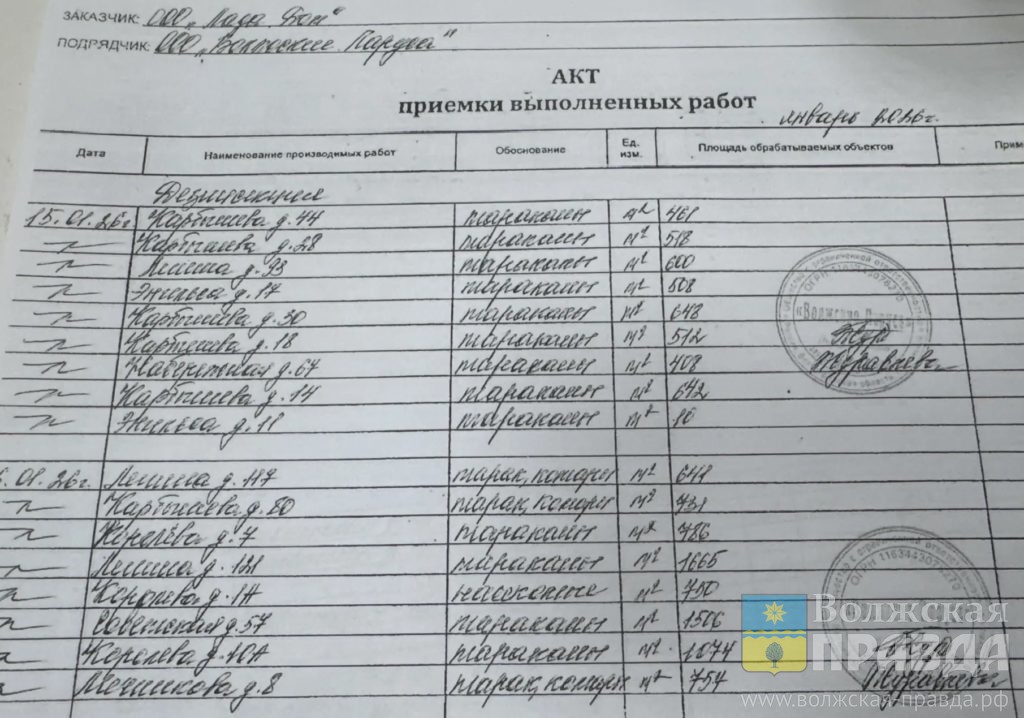 ЗАКАЗЧИК: ООО „Лада Дом"
ПОДРЯДЧИК: ООО „Волжские
АКТ
приемки выполненных работ
январь 2026г.
Дата Наименование производимых работ Обоснование Ед. изм. Площадь обрабатываемых объектов Прим
Дезинсекция
15.01.26г. Карбышева д.44 тараканы м2 461
–"– Карбышева д.28 тараканы м2 518
–"– Ленина д.93 тараканы м2 600
–"– Энгельса д.17 тараканы м2 508
–"– Карбышева д.30 тараканы м2 648
–"– Карбышева д.18 тараканы м2 512
–"– д.67 тараканы м2 408
–"– Карбышева д.14 тараканы м2 642
–"– Энгельса д.11 тараканы м2 10
.01.26г. Ленина д.117 тарак, комары м2
–"– Карбышева д.80 тарак, комары м2 731
–"– Королёва д.7 тараканы м2 786
–"– Ленина д.121 тараканы м2 1665
–"– Королева д.1А насекомые м2 750
–"– Советская д.57 тараканы м2 1506
Королева д.10А тараканы м2 1074
Мечникова д.8 тарак, комары м2 754
ОГРН
Журавлева
ОГРН 1163443076270
Журавлева
Волжская
ПРАВДА
www.волжская-правда.рф